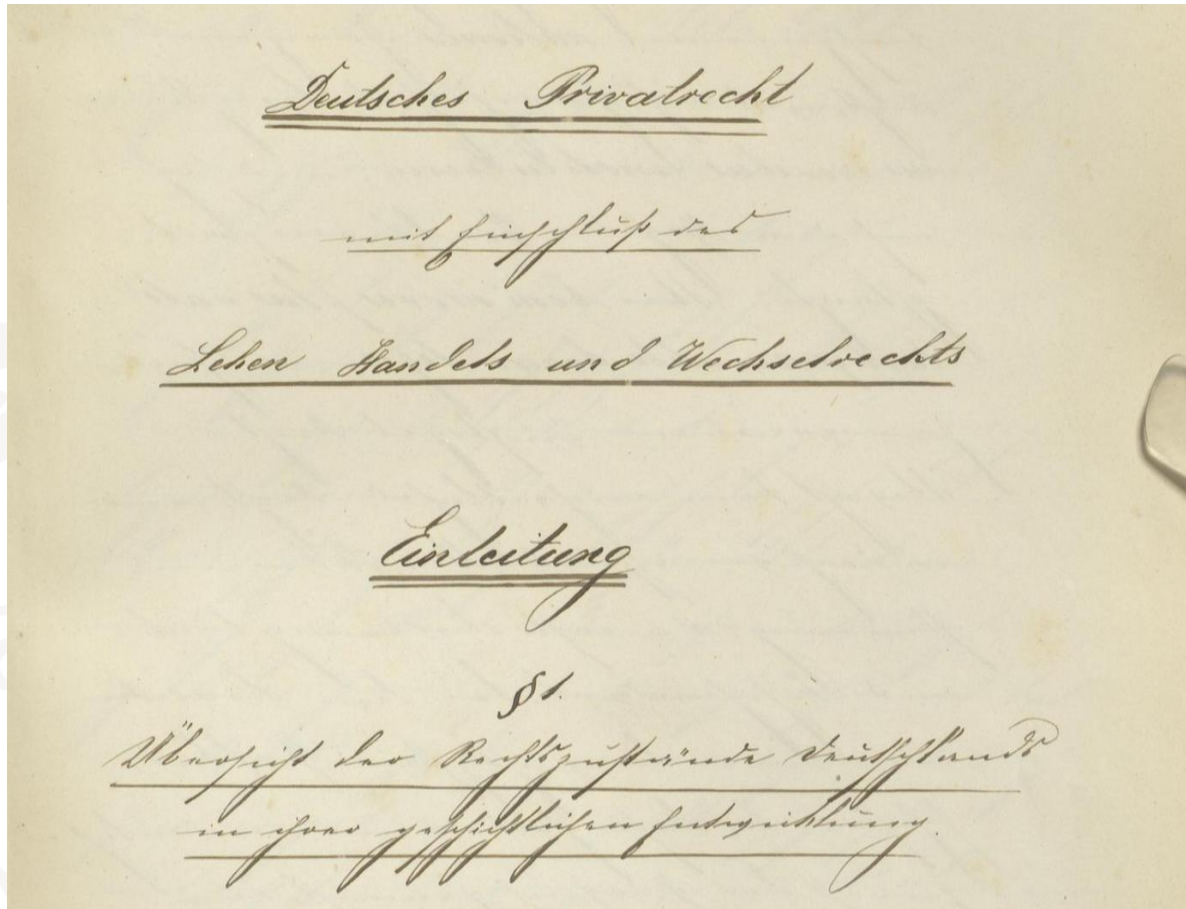 Deutsches Privatrecht
mit Einschluß des
Lehen Handels und Wechselrechts
Einleitung
§ 1.
Übersicht der Rechtszustände Deutschlands
in ihrer geschichtlichen Entwicklung.